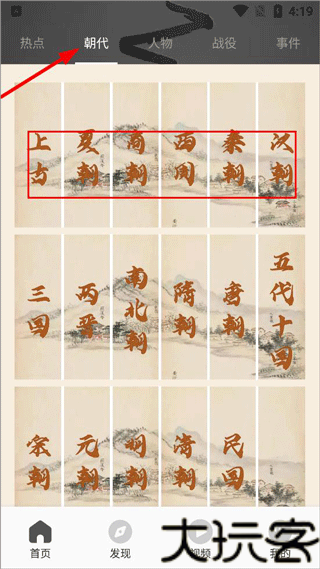 4:19
热点 朝代 人物 战役 事件
上古 夏朝 商朝 西周 秦朝 汉朝
三国 两晋 南北朝 隋朝 唐朝 五代十国
宋朝 元朝 明朝 清朝 民国
首页 发现 视频 我的
大玩客